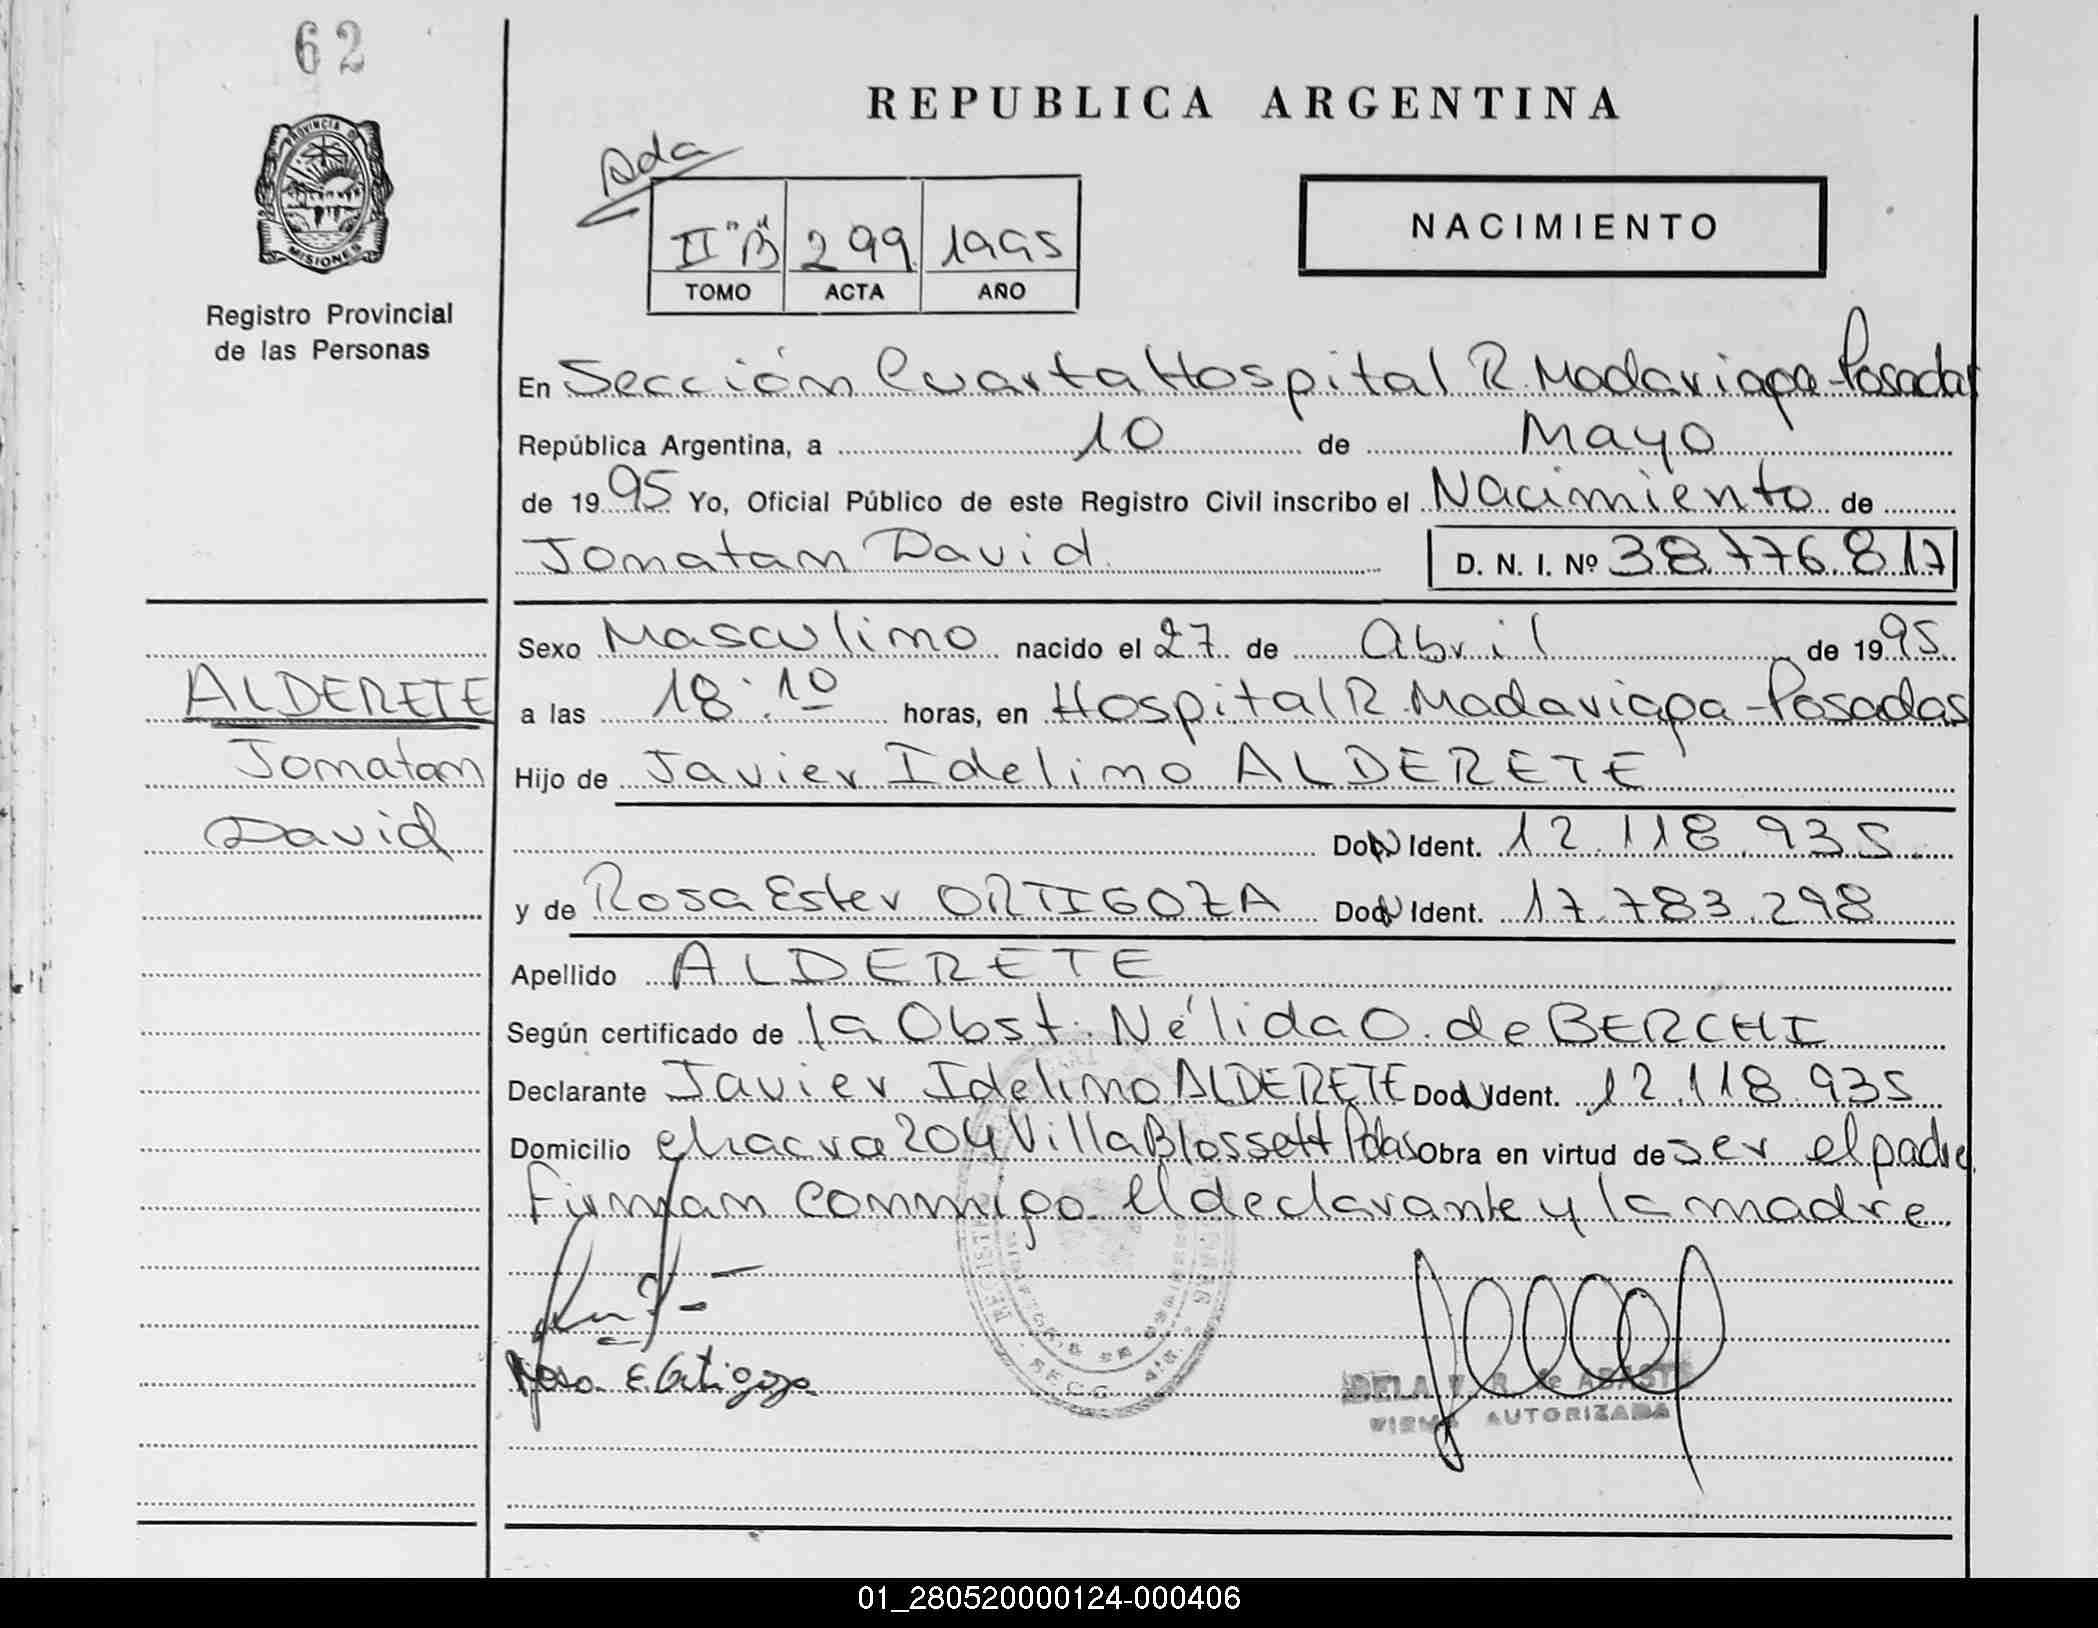 62
PROVINCIA DE
MISIONES
Registro Provincial
de las Personas
REPUBLICA ARGENTINA
Ada
II "B" 299 1995
TOMO ACTA AÑO
NACIMIENTO
En Sección Cuarta Hospital R. Madariaga-Posadas
República Argentina, a 10 de Mayo
de 1995 Yo, Oficial Público de este Registro Civil inscribo el Nacimiento de
Jonatan David D. N. I. Nº 38.776.817
Sexo Masculino nacido el 27 de Abril de 1995
a las 18:10 horas, en Hospital R. Madariaga-Posadas
Hijo de Javier Idelino ALDERETE
Doc. Ident. 12.118.935
y de Rosa Ester ORTIGOZA Doc. Ident. 17.783.298
Apellido ALDERETE
Según certificado de la Obst. Nélida O. de BERCHI
Declarante Javier Idelino ALDERETE Doc. Ident. 12.118.935
Domicilio chacra 204 Villa Blossett Pdas Obra en virtud de ser el padre
Firman conmigo el declarante y la madre
ALDERETE
Jonatan
David
Rosa E Ortigoza
AUTORIZADA
01_280520000124-000406